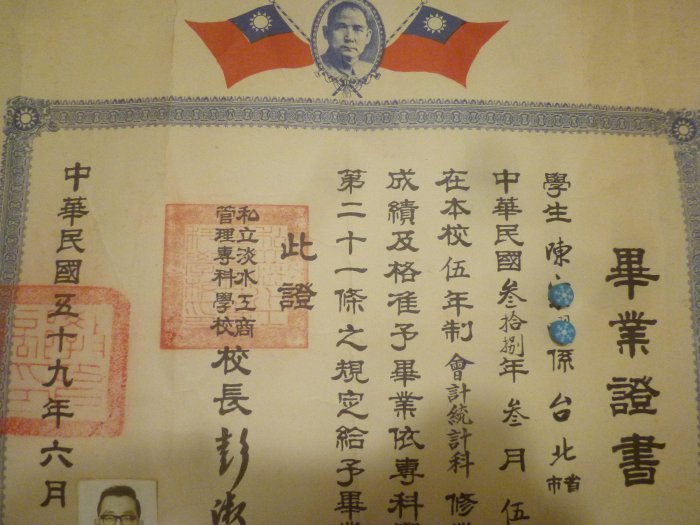 畢業證書
學生 陳 係 台 北 省市
中華民國 叁拾捌 年 叁 月 伍
在本校 伍 年制 會計統計科 修業
成績及格准予畢業依專科學
第二十一條之規定給予畢業
此證
私立淡水工商
管理專科學校 校長 彭淑
中華民國五十九年六月